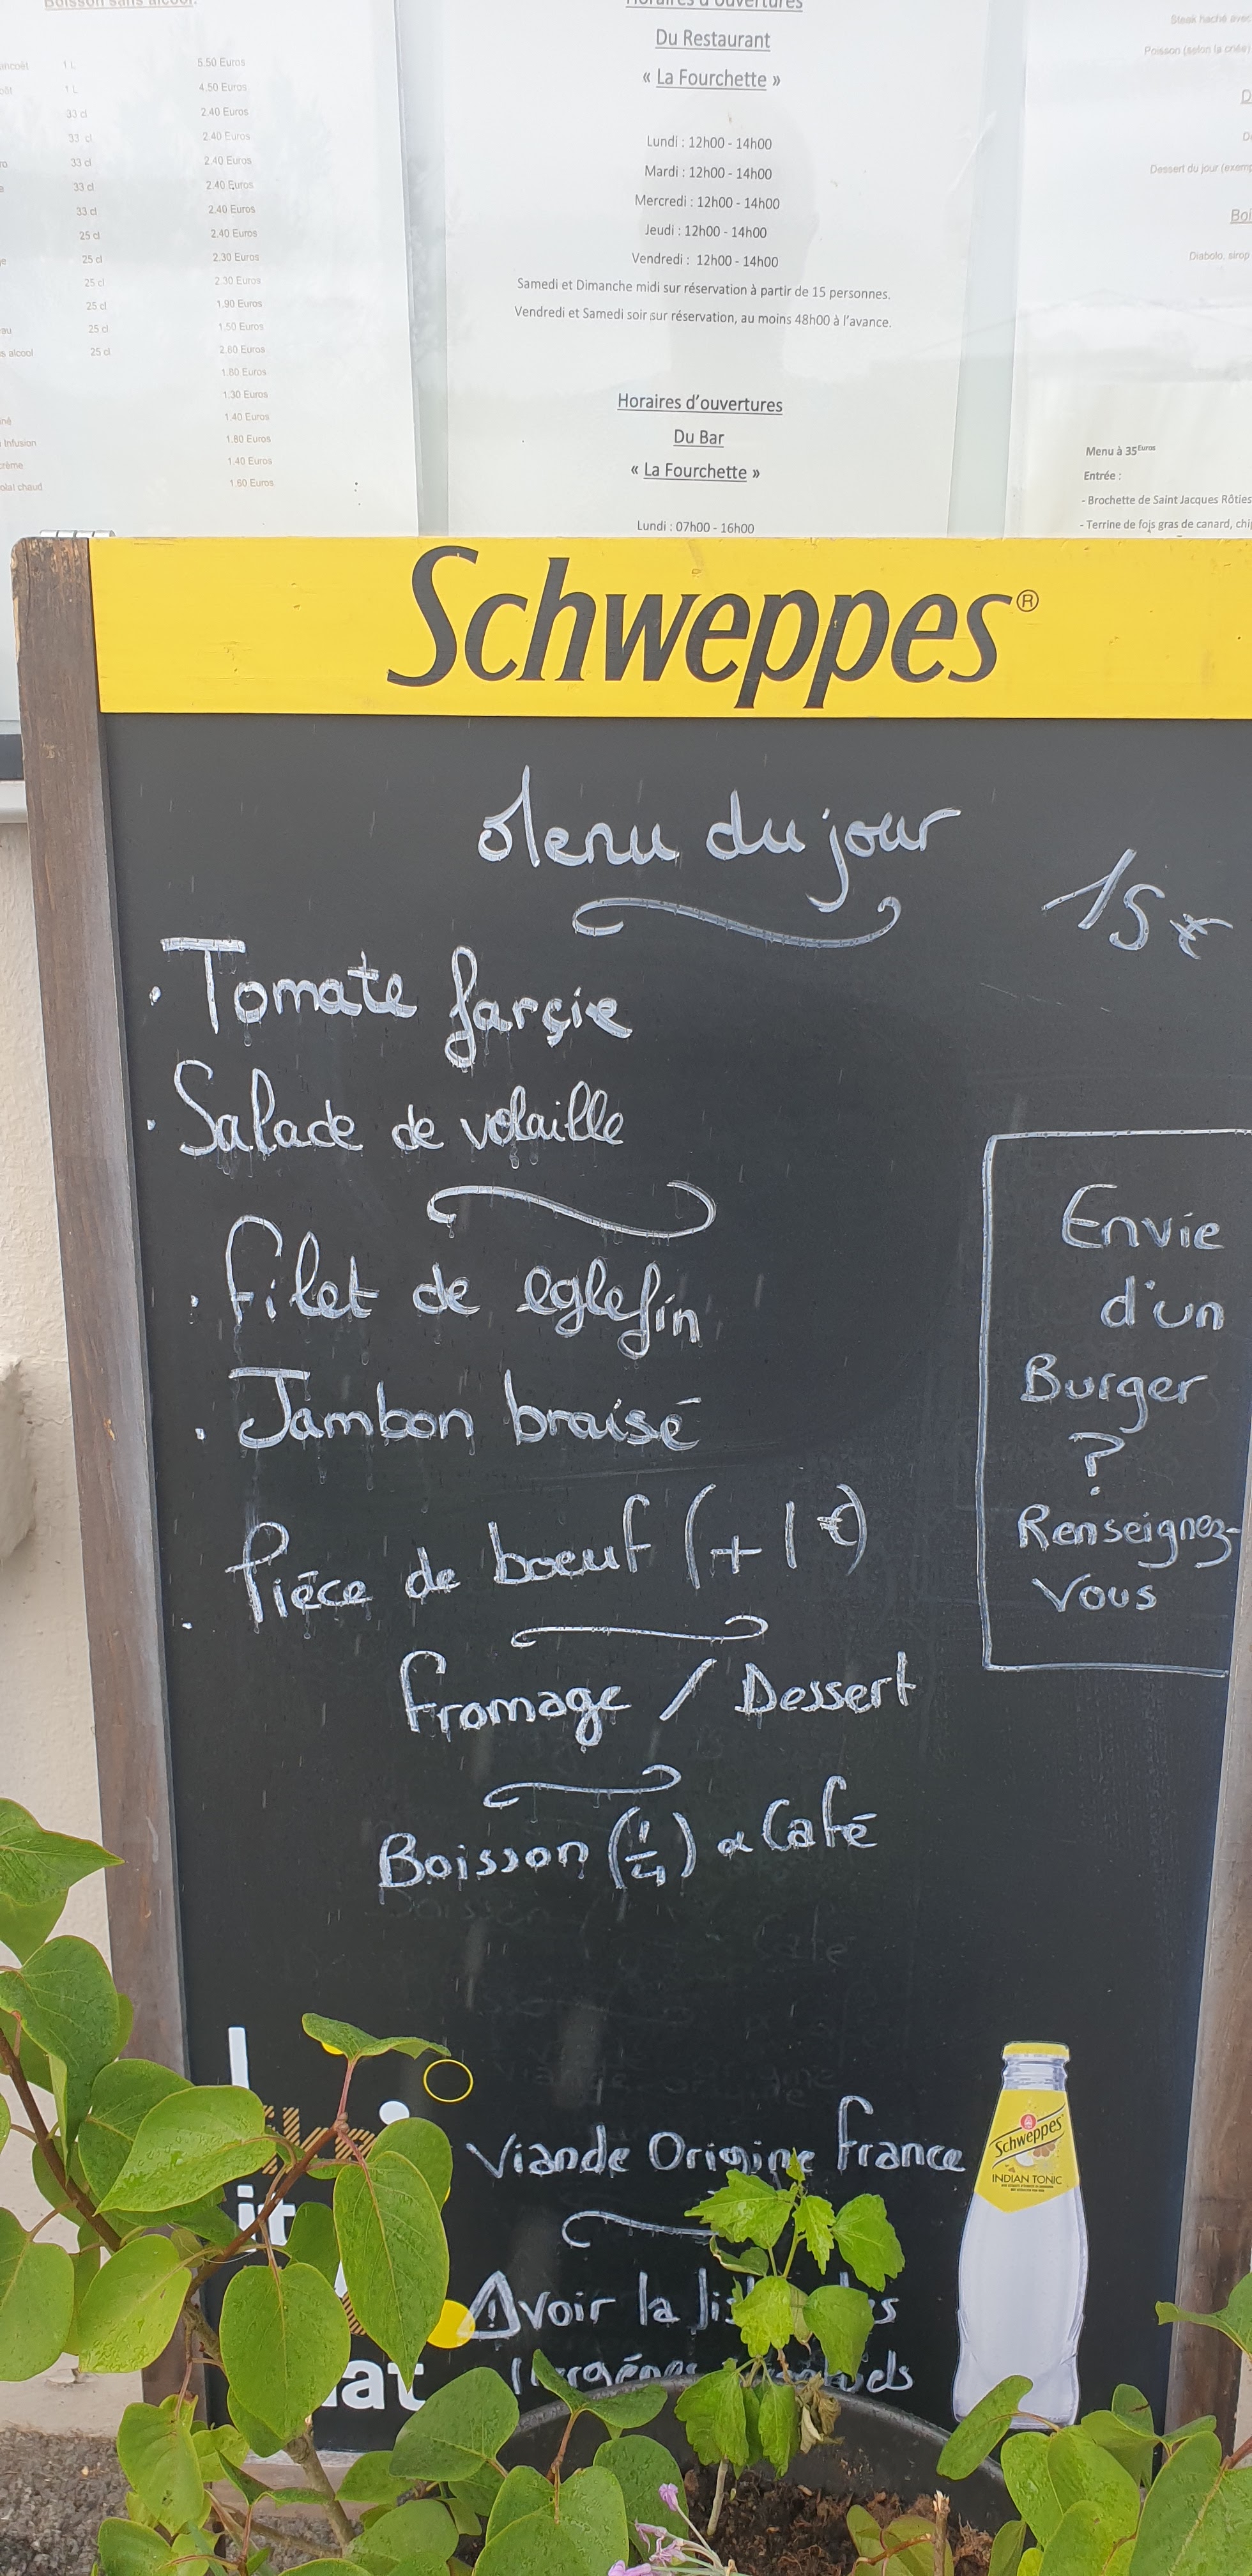 Boisson sans alcool:
1 L 5.50 Euros
1 L 4.50 Euros
33 cl 2.40 Euros
33 cl 2.40 Euros
33 cl 2.40 Euros
33 cl 2.40 Euros
33 cl 2.40 Euros
25 cl 2.40 Euros
25 cl 2.30 Euros
25 cl 2.30 Euros
25 cl 1.90 Euros
25 cl 1.50 Euros
s alcool 25 cl 2.60 Euros
1.80 Euros
1.30 Euros
1.40 Euros
Infusion 1.80 Euros
crème 1.40 Euros
olat chaud 1.60 Euros
Horaires d'ouvertures
Du Restaurant
« La Fourchette »
Lundi : 12h00 - 14h00
Mardi : 12h00 - 14h00
Mercredi : 12h00 - 14h00
Jeudi : 12h00 - 14h00
Vendredi : 12h00 - 14h00
Samedi et Dimanche midi sur réservation à partir de 15 personnes.
Vendredi et Samedi soir sur réservation, au moins 48h00 à l'avance.
Horaires d'ouvertures
Du Bar
« La Fourchette »
Lundi : 07h00 - 16h00
Steak haché avec
Poisson (selon la criée)
Dessert du jour (exemp
Boi
Diabolo, sirop
Menu à 35Euros
Entrée :
- Brochette de Saint Jacques Rôties
- Terrine de fois gras de canard, chi
Schweppes®
Menu du jour
15 €
. Tomate farçie
. Salade de volaille
. Filet de eglefin
. Jambon braisé
. Piéce de boeuf (+ 1 €)
Fromage / Dessert
Boisson (1/4) & Café
Envie
d'un
Burger
?
Renseignez-
Vous
Viande Origine France
voir la
Schweppes
INDIAN TONIC